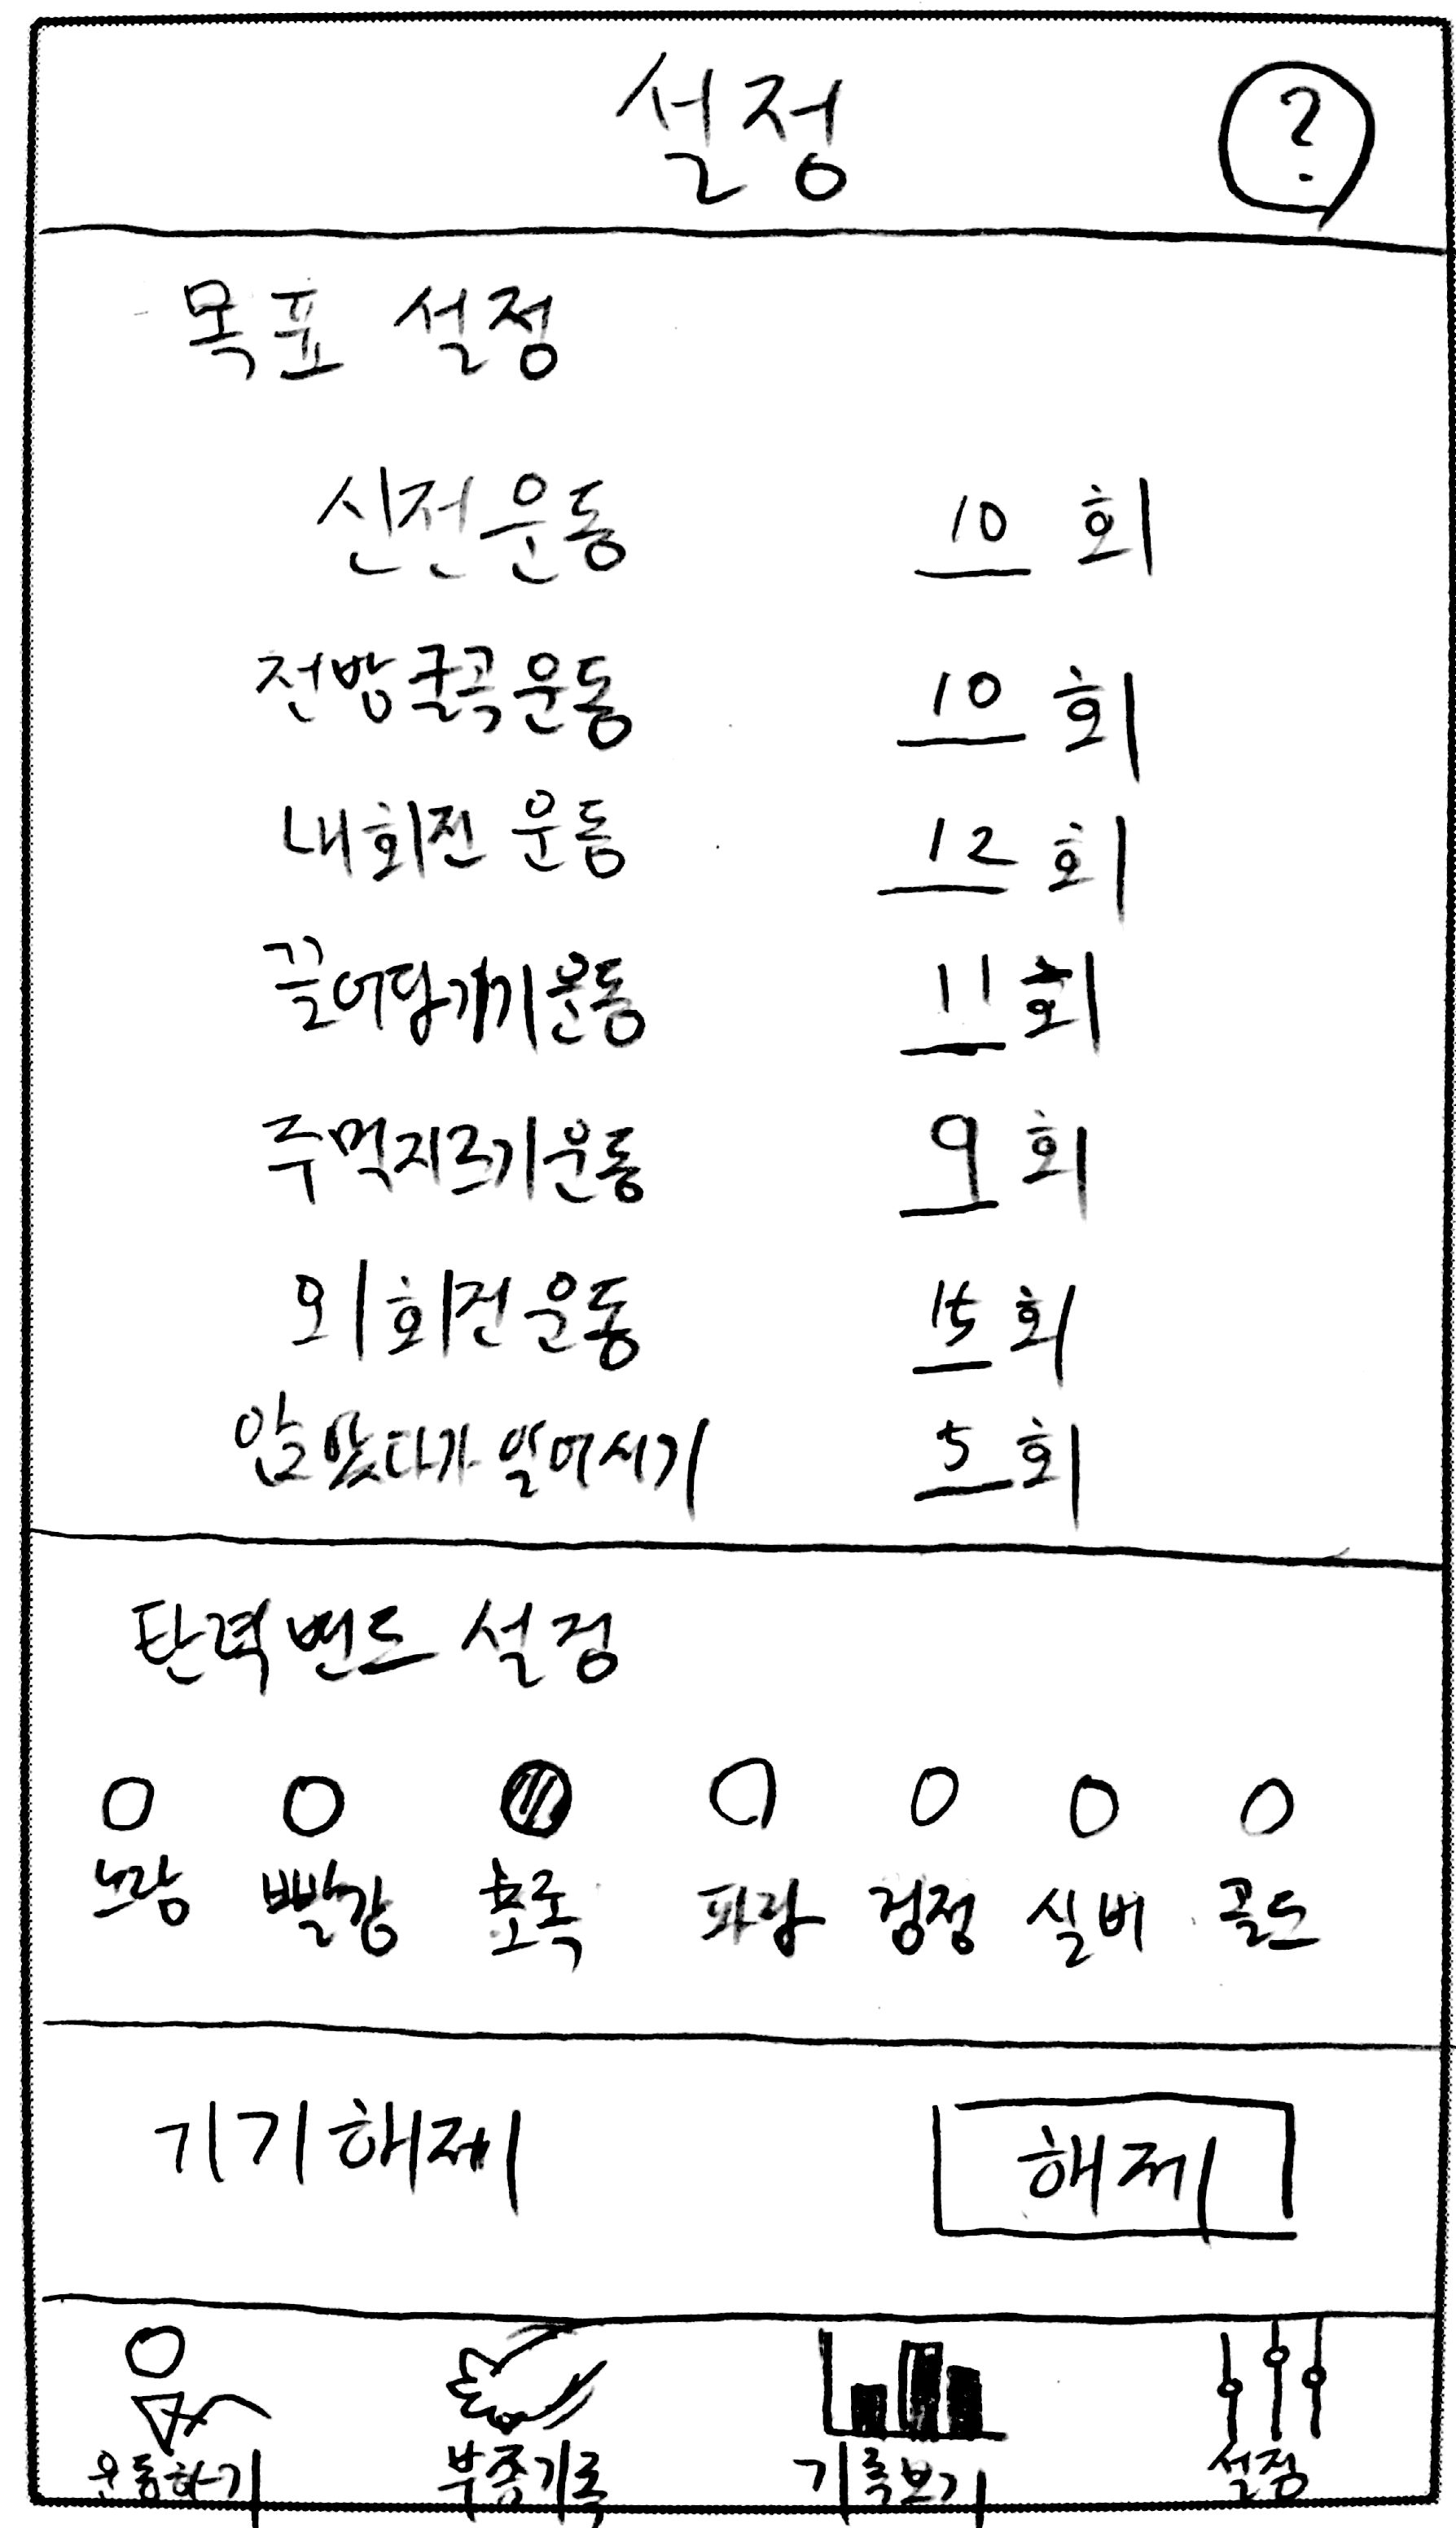 설정 ?
목표 설정
신전운동 10 회
전방굴곡운동 10 회
내회전 운동 12 회
끌어당기기운동 11 회
주먹지르기운동 9 회
외회전운동 15 회
앉았다가 일어서기 5 회
탄력밴드 설정
노랑 빨강 초록 파랑 검정 실버 골드
기기해제 해제
운동하기 부종기록 기록보기 설정